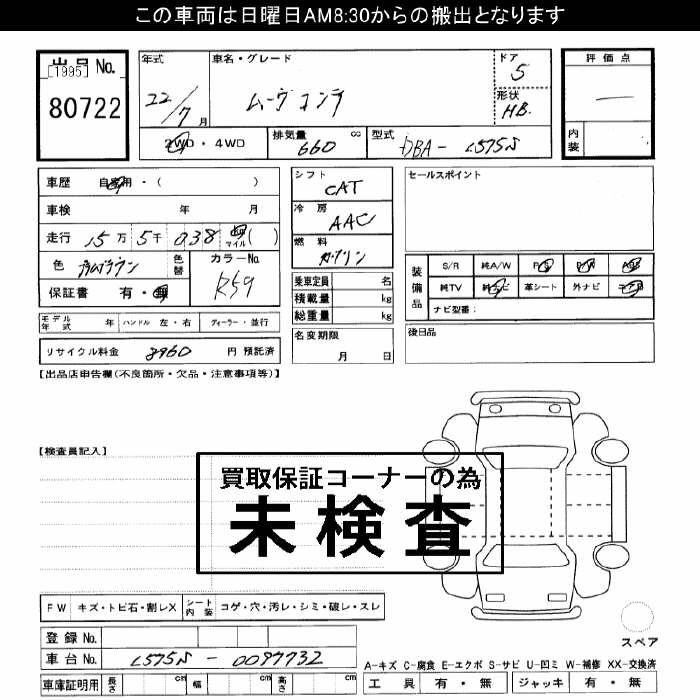 この車両は日曜日AM8:30からの搬出となります
出品 No.
[1995]
80722
年式
22/7月
車名・グレード
ムーヴ コンテ
ドア
5
形状
HB
評価点
内装
2WD・4WD
排気量 660 cc
型式 DBA- L575S
車歴 自家用・( )
車検 年 月
走行 15万 5千 038 マイル( )
色
色替
カラーNo.
R59
保証書 有・無
シフト CAT
冷房 AAC
燃料 ガソリン
乗車定員 名
積載量 kg
総重量 kg
セールスポイント
装備品
S/R 純A/W P/S P/W A/B
純TV 純ナビ 革シート 外ナビ
ナビ型番:
モデル年式 年 ハンドル 左・右 ディーラー・並行
リサイクル料金 8960 円 預託済
名変期限
月 日
後日品
【出品店申告欄(不良箇所・欠品・注意事項等)】
【検査員記入】
買取保証コーナーの為
未検査
FW キズ・トビ石・割レX シート内装 コゲ・穴・汚レ・シミ・破レ・スレ
登録 No.
車台 No. L575S - 0097732
車庫証明用 長さ cm 幅 cm 高さ cm
スペア
A-キズ C-腐食 E-エクボ S-サビ U-凹ミ W-補修 XX-交換済
工具 有・無 ジャッキ 有・無